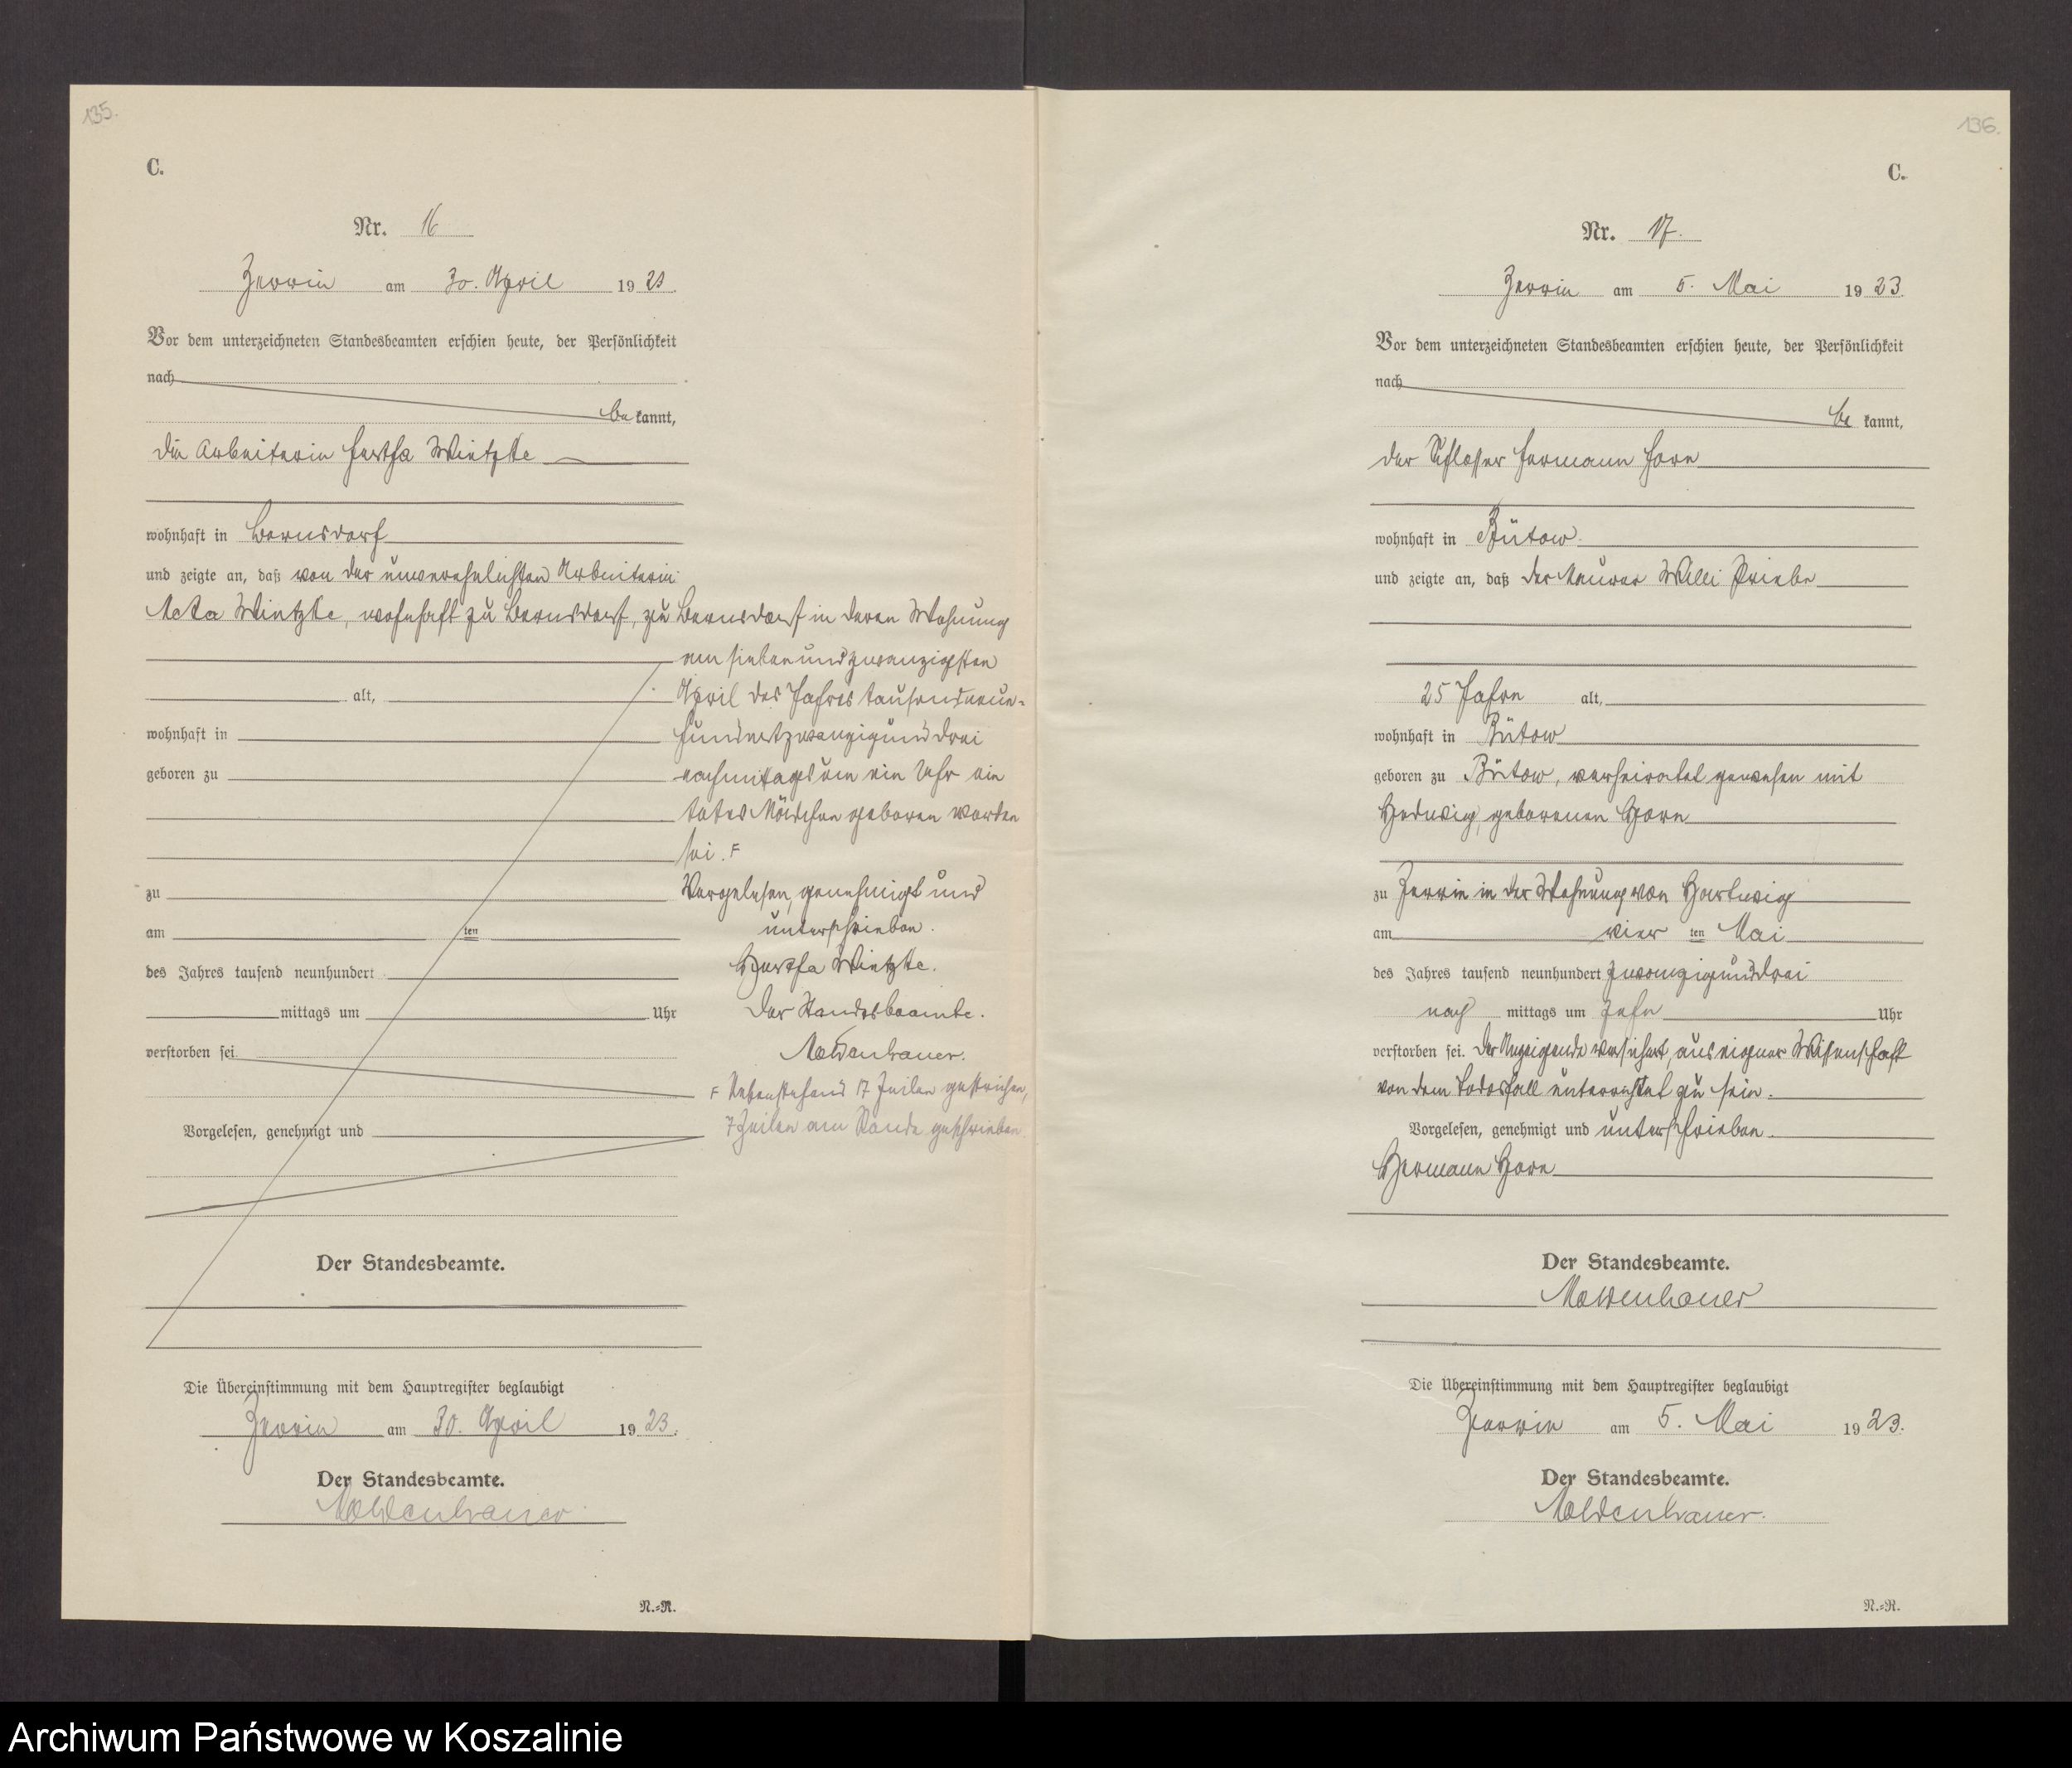 135.
C.
Nr. 16
Zerrin am 30. April 1923
Vor dem unterzeichneten Standesbeamten erschien heute, der Persönlichkeit
nach
be kannt,
die Arbeiterin Hertha Wietzke
wohnhaft in Bernsdorf
und zeigte an, daß von der unverehelichten Arbeiterin
Meta Wietzke, wohnhaft zu Bernsdorf, zu Bernsdorf in deren Wohnung
am siebenundzwanzigsten
alt, April des Jahres tausendneun-
wohnhaft in hundertzwanzigunddrei
geboren zu nachmittags um ein Uhr ein
totes Mädchen geboren worden
sei. F
zu Vorgelesen, genehmigt und
am ten unterschrieben.
des Jahres tausend neunhundert Hertha Wietzke.
mittags um Uhr Der Standesbeamte.
verstorben sei Moldenhauer.
F Nebenstehend 17 Zeilen gestrichen,
Vorgelesen, genehmigt und 7 Zeilen am Rande geschrieben
Der Standesbeamte.
Die Übereinstimmung mit dem Hauptregister beglaubigt
Zerrin am 30. April 1923.
Der Standesbeamte.
Moldenhauer.
N.=R.
136.
C.
Nr. 17.
Zerrin am 5. Mai 1923.
Vor dem unterzeichneten Standesbeamten erschien heute, der Persönlichkeit
nach
be kannt,
der Schlosser Hermann Horn
wohnhaft in Bütow
und zeigte an, daß der Maurer Willi Priebe
25 Jahre alt,
wohnhaft in Bütow
geboren zu Bütow, verheiratet gewesen mit
Hedwig, geborenen Horn
zu Zerrin in der Wohnung von Hartwig
am vier ten Mai
des Jahres tausend neunhundert zwanzigunddrei
nach mittags um zehn Uhr
verstorben sei. Der Anzeigende versichert, aus eigener Wissenschaft
von dem Todesfall unterrichtet zu sein.
Vorgelesen, genehmigt und unterschrieben.
Hermann Horn
Der Standesbeamte.
Moldenhauer
Die Übereinstimmung mit dem Hauptregister beglaubigt
Zerrin am 5. Mai 1923.
Der Standesbeamte.
Moldenhauer.
N.=R.
Archiwum Państwowe w Koszalinie